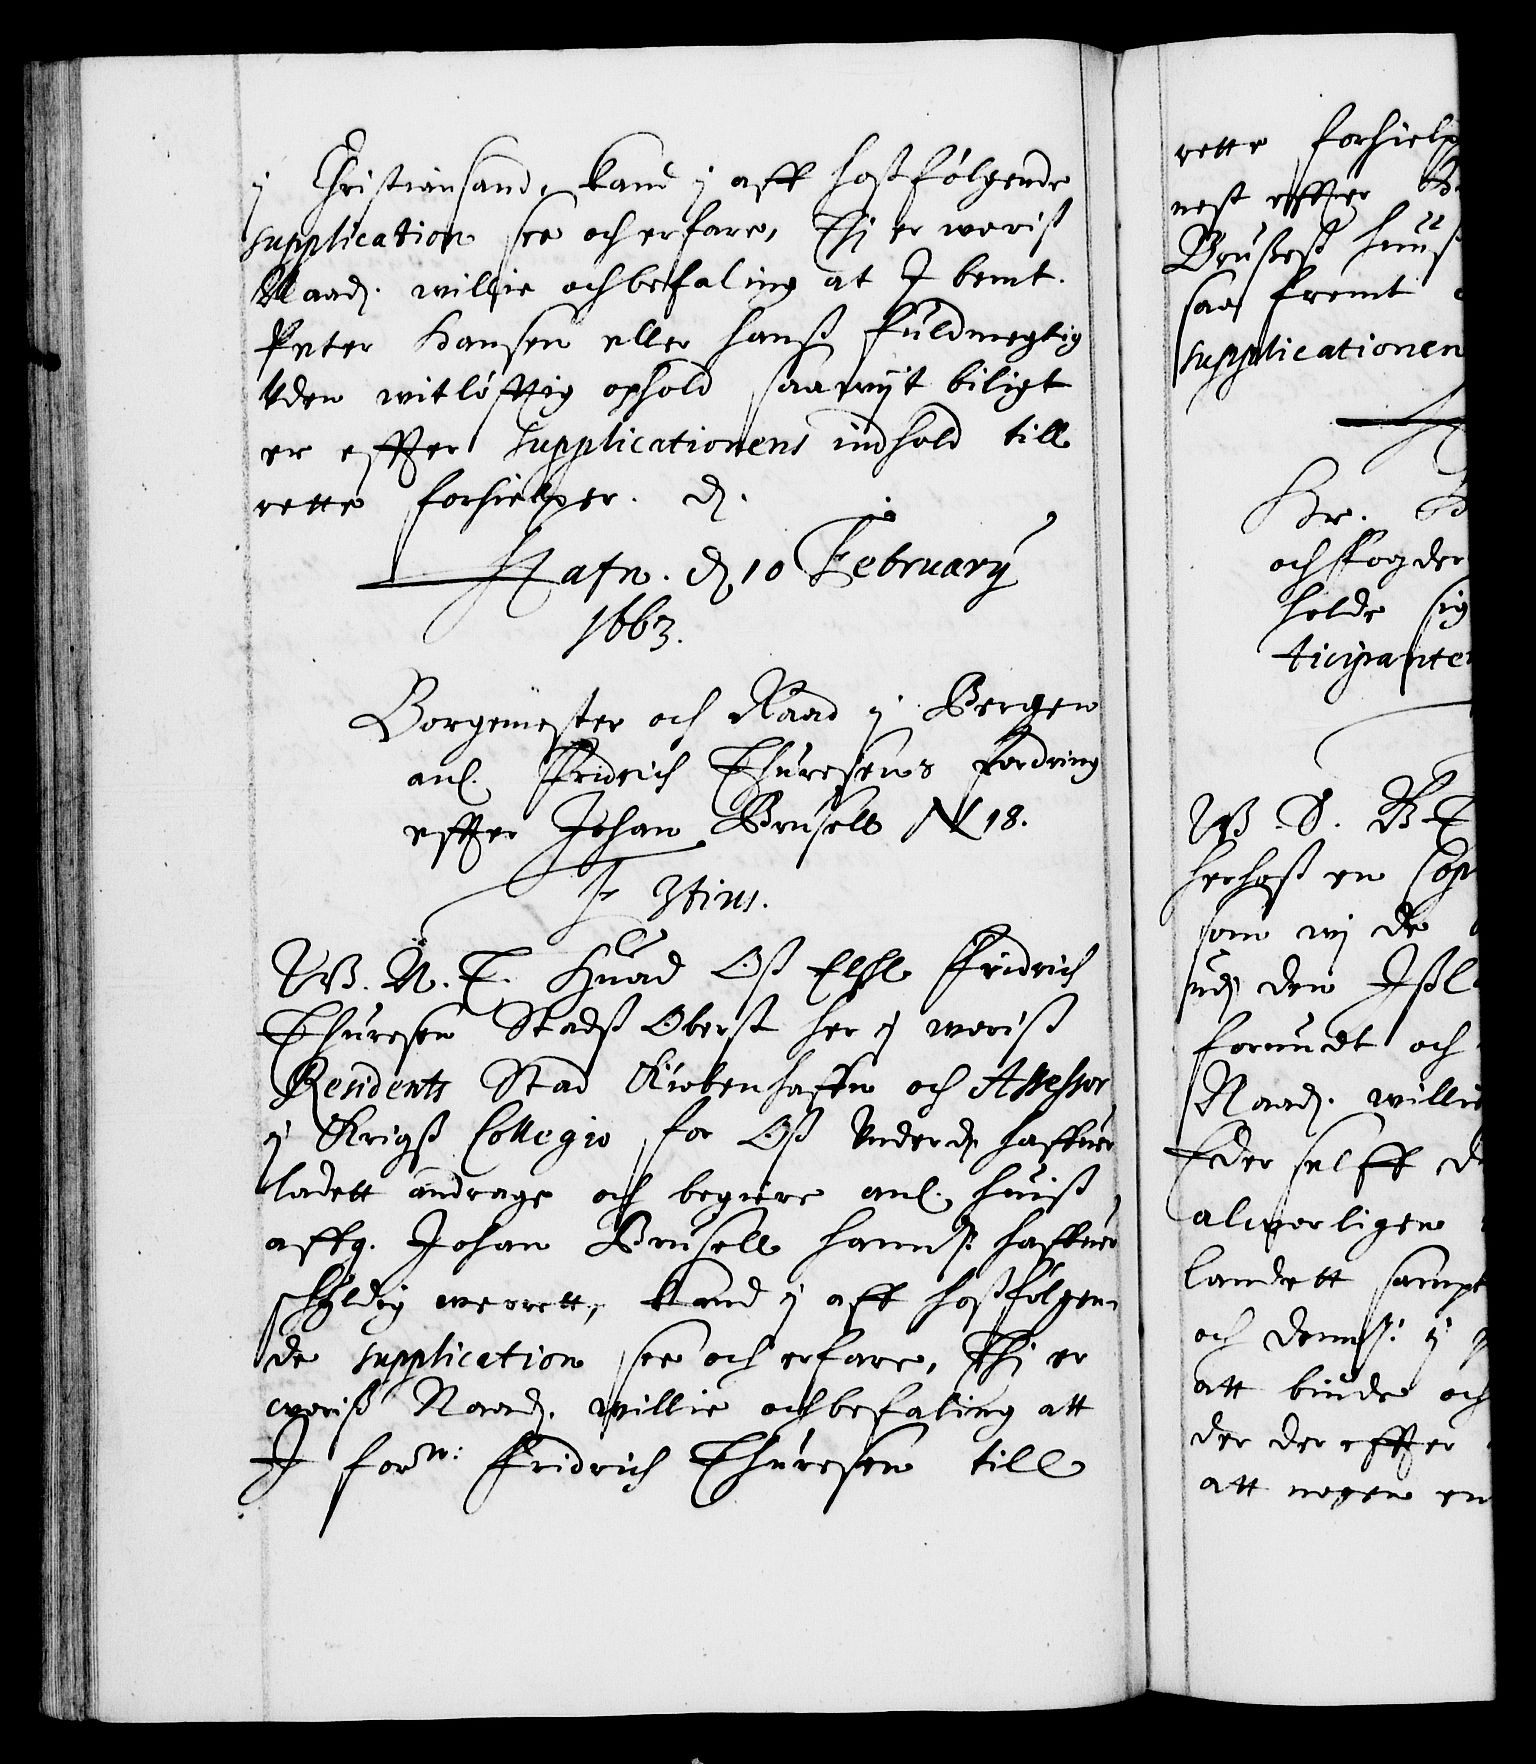 j Christiansand, kand j aff hosfølgende
supplication see och erfare, Thj er woris
Naad. willie och befaling at I bemt.
Peter Hansen eller hans fuldmegtig
uden witløfftig ophold saawijt biligt
er effter supplicationens indhold till
rette forhielper. d.
Hafn. d 10 February
1663.
Borgemester och Raad j Bergen
anl. Fridrich Thuresens fordring
effter Johan Brusell N 18.
F 3tius.
W. G. T. Huad Os Elshl Fridrich
Thuresen Stads Oberst her j woris
Residents Stad Kiøbenhaffn och Assessor
j Krigs Collegio for Os Underd: haffuer
ladett andrage och begiere anl. huis
affg. Johan Brusell hannem haffuer
skyldig werrett, kand j aff hosfølgen-
de supplication see och erfare, Thj er
woris Naad. willie och befaling att
I forn: Fridrich Thuresen till
rette forhielp
nest effter
Brusels huus
saa fremt
supplicationen
Hr.
och fogder
holde sig
ticipanter
W. G. T.
herhos en Cop
som wj de
udj den Jsl
forundt och
Naad. willie
Eder selff
alworligen
landett sampt
och dennem j
att binde och
der der effter
att nogen en